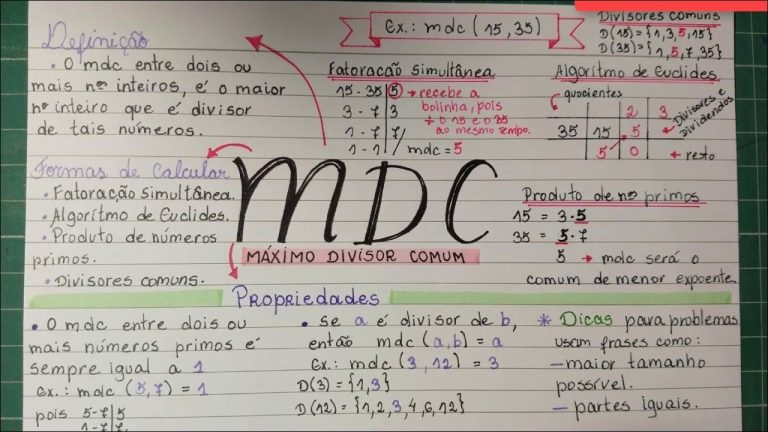 Definição
• O mdc entre dois ou
mais nos inteiros, é o maior
no inteiro que é divisor
de tais números.
Formas de Calcular
• Fatoração Simultânea.
• Algorítmo de Euclides.
• Produto de números
primos.
• Divisores comuns.
Ex.: mdc (15,35)
Fatoração Simultânea
15 - 35 | 5 → recebe a
bolinha, pois
÷ o 15 e o 35
ao mesmo tempo.
3 - 7 | 3
1 - 7 | 7
1 - 1 / mdc = 5
Divisores comuns
D(15) = {1,3,5,15}
D(35) = {1,5,7,35}
Algorítmo de Euclides
quocientes
2 3
35 15 5
5 0 ← resto
Divisores e
dividendos
MDC
MÁXIMO DIVISOR COMUM
Produto de nos primos
15 = 3·5
35 = 5·7
5 → mdc será o
comum de menor expoente.
Propriedades
• O mdc entre dois ou
mais números primos é
sempre igual a 1
Ex.: mdc (5,7) = 1
pois 5-7 | 5
1-7 | 7
• Se a é divisor de b,
então mdc (a,b) = a
Ex.: mdc (3,12) = 3
D(3) = {1,3}
D(12) = {1,2,3,4,6,12}
* Dicas para problemas
usam frases como:
— maior tamanho
possível.
— partes iguais.